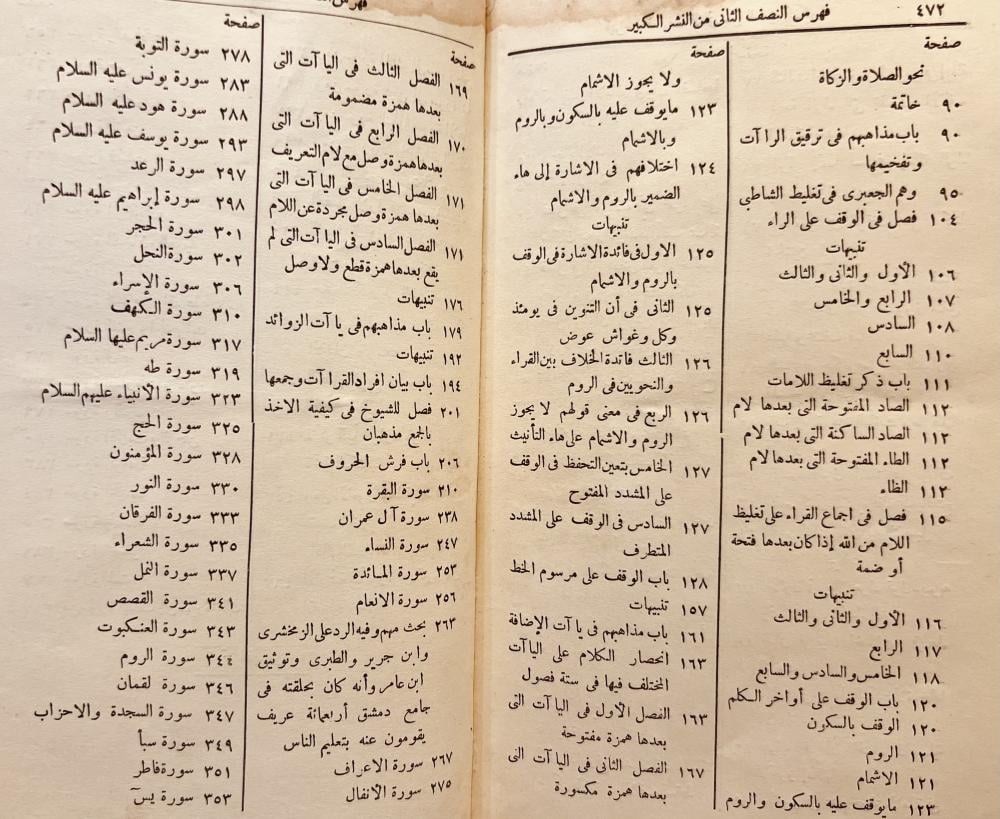 ٤٧٢ فهرس النصف الثانى من النشر الكبير
صحفة
نحو الصلاة والزكاة
٩٠ خاتمة
٩٠ باب مذاهبهم فى ترقيق الراآت
وتفخيمها
٩٥ وهم الجعبرى فى تغليط الشاطبى
١٠٤ فصل فى الوقف على الراء
تنبيهات
١٠٦ الأول والثانى والثالث
١٠٧ الرابع والخامس
١٠٨ السادس
١١٠ السابع
١١١ باب ذكر تغليظ اللامات
١١٢ الصاد المفتوحة التى بعدها لام
١١٢ الصاد الساكنة التى بعدها لام
١١٢ الطاء المفتوحة التى بعدها لام
١١٢ الظاء
١١٥ فصل فى اجماع القراء على تغليظ
اللام من الله إذا كان بعدها فتحة
أو ضمة
تنبيهات
١١٦ الأول والثانى والثالث
١١٧ الرابع
١١٨ الخامس والسادس والسابع
١٢٠ باب الوقف على أواخر الكلم
١٢٠ الوقف بالسكون
١٢١ الروم
١٢١ الاشمام
١٢٣ مايوقف عليه بالسكون والروم
صحفة
ولا يجوز الاشمام
١٢٣ مايوقف عليه بالسكون وبالروم
وبالاشمام
١٢٤ اختلافهم فى الاشارة إلى هاء
الضمير بالروم والاشمام
تنبيهات
١٢٥ الاول فى فائدة الاشارة فى الوقف
بالروم والاشمام
١٢٥ الثانى فى أن التنوين فى يومئذ
وكل وغواش عوض
١٢٦ الثالث فائدة الخلاف بين القراء
والنحويين فى الروم
١٢٦ الربع فى معنى قولهم لا يجوز
الروم والاشمام على هاء التأنيث
١٢٧ الخامس يتعين التحفظ فى الوقف
على المشدد المفتوح
١٢٧ السادس فى الوقف على المشدد
المتطرف
١٢٨ باب الوقف على مرسوم الخط
١٥٧ تنبيهات
١٦١ باب مذاهبهم فى ياآت الإضافة
١٦٣ انحصار الكلام على الياآت
المختلف فيها فى ستة فصول
١٦٣ الفصل الأول فى الياآت التى
بعدها همزة مفتوحة
١٦٧ الفصل الثانى فى الياآت التى
بعدها همزة مكسورة
صحفة
١٦٩ الفصل الثالث فى الياآت التى
بعدها همزة مضمومة
١٧٠ الفصل الرابع فى الياآت التى
بعدها همزة وصل مع لام التعريف
١٧١ الفصل الخامس فى الياآت التى
بعدها همزة وصل مجردة عن اللام
١٧١ الفصل السادس فى الياآت التى لم
يقع بعدها همزة قطع ولا وصل
١٧٦ تنبيهات
١٧٩ باب مذاهبهم فى ياآت الزوائد
١٩٢ تنبيهات
١٩٤ باب بيان افراد القراآت وجمعها
٢٠١ فصل للشيوخ فى كيفية الاخذ
بالجمع مذهبان
٢٠٦ باب فرش الحروف
٢١٠ سورة البقرة
٢٣٨ سورة آل عمران
٢٤٧ سورة النساء
٢٥٣ سورة المائدة
٢٥٦ سورة الانعام
٢٦٣ بحث مهم وفيه الرد على الزمخشرى
وابن جرير والطبرى وتوثيق
ابن عامر وأنه كان بحلقته فى
جامع دمشق أربعمائة عريف
يقومون عنه بتعليم الناس
٢٦٧ سورة الاعراف
٢٧٥ سورة الأنفال
صحفة
٢٧٨ سورة التوبة
٢٨٣ سورة يونس عليه السلام
٢٨٨ سورة هود عليه السلام
٢٩٣ سورة يوسف عليه السلام
٢٩٧ سورة الرعد
٢٩٨ سورة إبراهيم عليه السلام
٣٠١ سورة الحجر
٣٠٢ سورة النحل
٣٠٦ سورة الإسراء
٣١٠ سورة الكهف
٣١٧ سورة مريم عليها السلام
٣١٩ سورة طه
٣٢٣ سورة الأنبياء عليهم السلام
٣٢٥ سورة الحج
٣٢٨ سورة المؤمنون
٣٣٠ سورة النور
٣٣٣ سورة الفرقان
٣٣٥ سورة الشعراء
٣٣٧ سورة النمل
٣٤١ سورة القصص
٣٤٣ سورة العنكبوت
٣٤٤ سورة الروم
٣٤٦ سورة لقمان
٣٤٧ سورة السجدة والاحزاب
٣٤٩ سورة سبأ
٣٥١ سورة فاطر
٣٥٣ سورة يسٓ